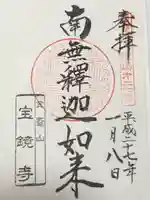 奉拝
平成二十七年
一月八日
南無釋迦如来
宝鏡寺